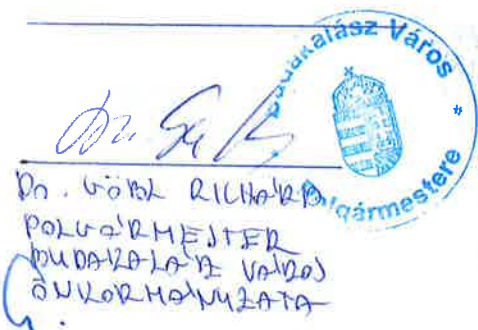 Budakalász Város
Polgármestere
Dr.
Dr. GÖBL RICHÁRD
POLGÁRMESTER
BUDAKALÁSZ VÁROS
ÖNKORMÁNYZATA